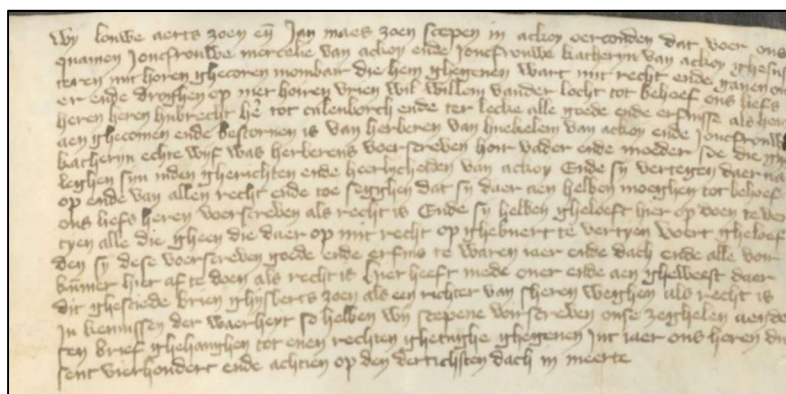 Wij louwe aerts zoen en Jan maes zoen scepen in ackoy oerconden dat voer ons
quamen Joncfrouwe mercelie van ackoy ende Joncfrouwe katheryn van ackoy ghesus
teren mit horen ghecoren mombar die hem ghegeven wart mit recht ende gaven ou
er ende droghen op met horen vrien wil willem vander locht tot behoef ons liefs
heren heren hubrecht her tot culenborch ende ter lecke alle goede ende erfnisse als hem
aen ghecomen ende bestorven is van herberen van hukelem van ackoy ende Joncfrouwe
katheryn echte wyf was herberens voerscreven hoir vader ende moeder soe die ghe
leghen syn inden gherichten ende heerlycheiden van ackoy Ende sy vertegen daer na
op ende van allen recht ende toe segghen dat sy daer aen hebben moeghen tot behoef
ons liefs heren voerscreven als recht is Ende sy hebben gheloeft hier op doen te ver
tyen alle die gheen die daer op mit recht op ghebuert te vertyen Voert gheloef
den sy dese voerscreven goede ende erfnis te waren iaer ende dach ende alle voir
kummer hier af te doen als recht is Hier heeft mede over ende aen gheweest daer
dit ghesciede brien ghysberts zoen als een richter van sheren weghen als recht is
In kennissen der waerheyt so hebben wy scepene voirscreven onse zeghelen aen de
sen brief ghehanghen tot enen rechten ghetughe ghegeven Int iaer ons heren du
sent vierhondert ende achtien op den dertichsten dach in meerte